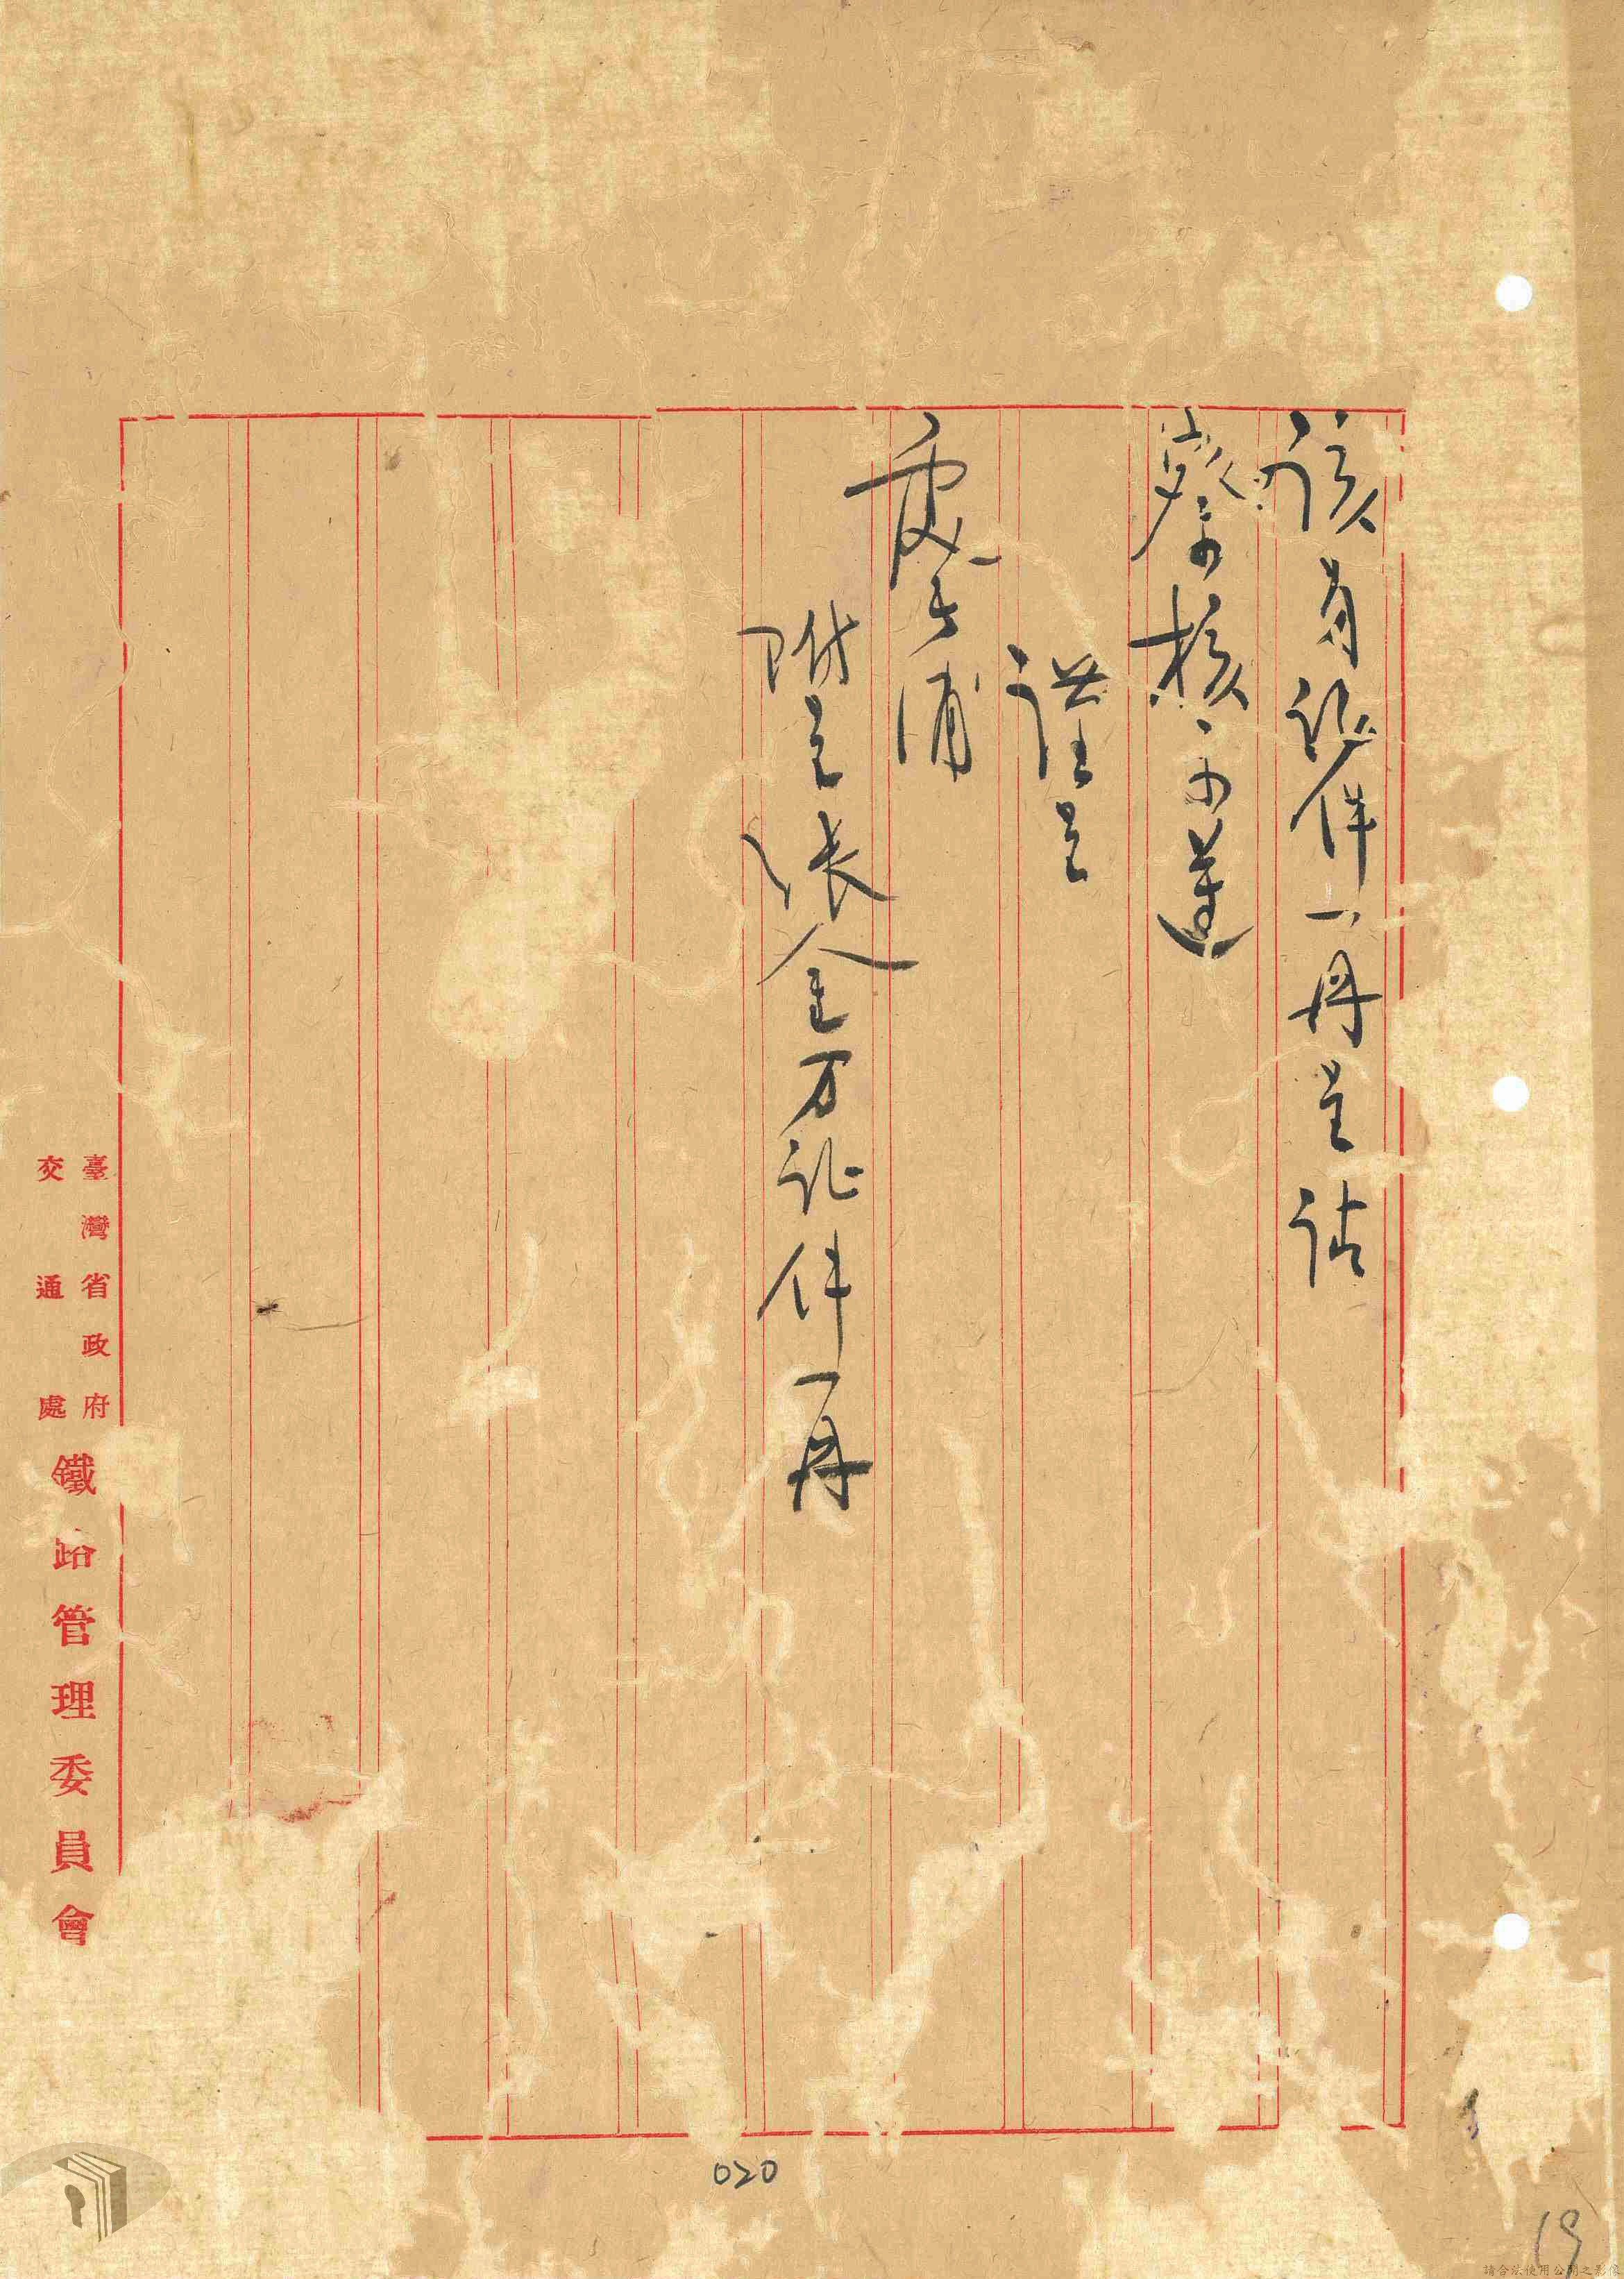 該有證件一冊呈請
察核示遵
謹呈
處長浦
附呈張金万証件一冊
臺灣省政府
交通處
鐵路管理委員會
020
19
請合法使用公開之影像